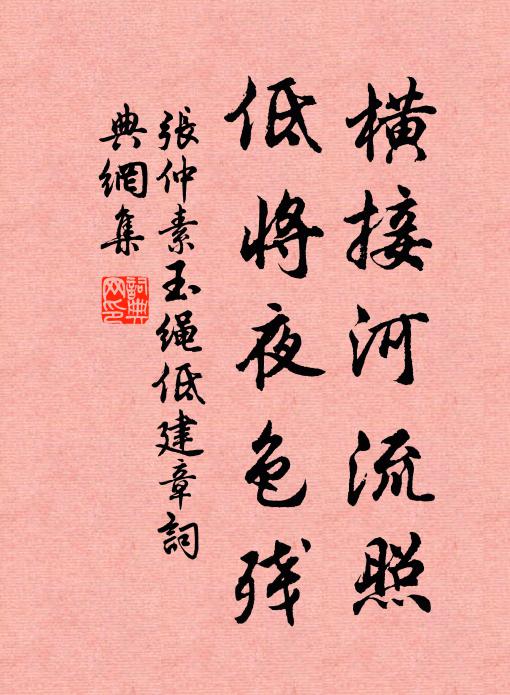 横接河流照
低将夜色残
張仲素玉绳低建章詞
典網集
詞典
网印